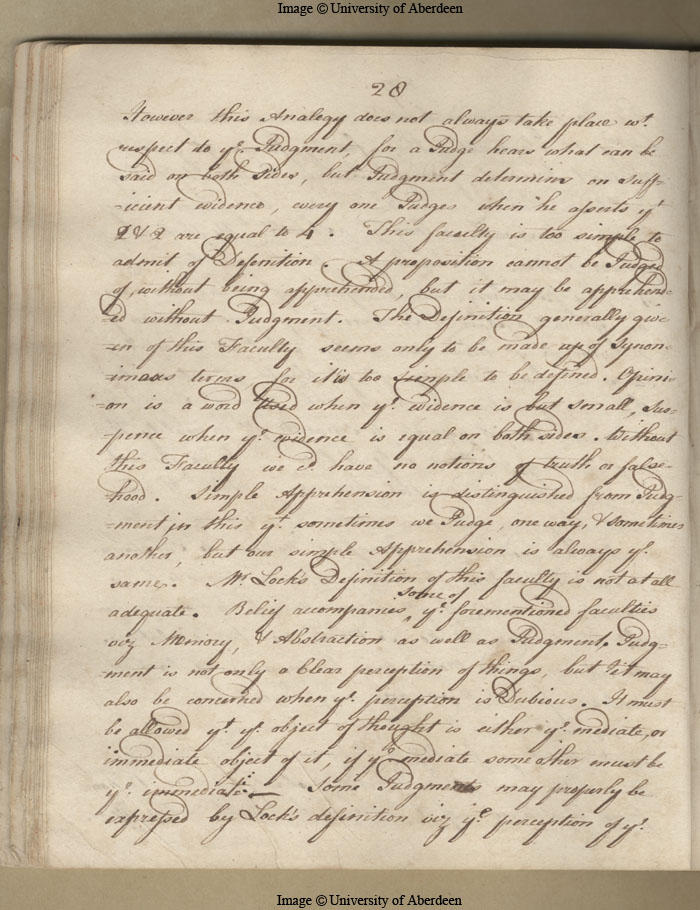 Image © University of Aberdeen
28
However this Analogy does not always take place wt.
respect do ye. Judgment, for a Judge hears what can be
said on both sides, but Judgment determins on suff-
-icient evidence, every one Judges when he asserts yt
2 & 2 are equal to 4. This faculty is too simple to
admit of Defenition A proposition cannot be Judged
of, without being apprehended, but it may be apprehen-
-ed without Judgment. The Definition generally giv-
-en of this Faculty seems only to be made up of Synon-
-imaus terms for it is too simple to be defined. Opini-
-on is a word Used when ye. evidence is but small, Sus-
-pence when ye. evidence is equal on both sides. Without
this Faculty we cd have no notions of truth or false-
-hood. Simple Apprehension is distinguished from Judg-
-ment in this yt. sometimes we Judge, one way, & sometimes
another, but our simple Apprehension is always ye.
same. Mr. Lock's Definition of this faculty is not at all
adequate. Belief accompanies some of ye. forementioned faculties
viz Memory, & Abstraction as well as Judgment. Judg-
-ment is not only a clear perception of things, but it may
also be concerned when ye. perception is Dubious. It must
be allowed yt. ye. object of thought is either ye. mediate, or
immediate object of it, if ye mediate some other must be
ye. immediate.— Some Judgments may properly be
expressed by Lock's definition viz ye. perception of ye.
Image © University of Aberdeen